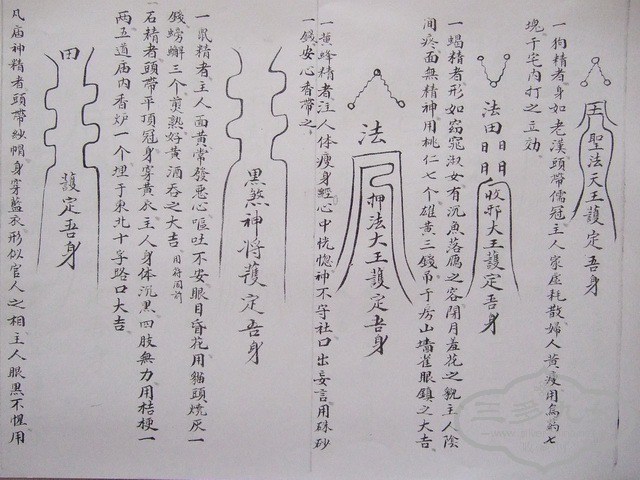 聖法天王護定吾身
一狗精者身如老漢頭帶儒冠主人家虛耗散婦人黃瘦用烏葯七
塊于宅內打之立効
法田日日日日收邪大王護定吾身
一蝎精者形如窈窕淑女有沉魚落鴈之容閉月羞花之貌主人陰
間疼面無精神用桃仁七个雄黃三錢吊于房山墻雀眼鎮之大吉
法押法大王護定吾身
一黃蜂精者注人体瘦身經心中恍惚神不守社口出妄言用硃砂
一錢安心香帶之
黑煞神将護定吾身
一鼠精者主人面黃常發惡心嘔吐不安眼目昏花用貓頭燒灰一
錢螃蠏三个煎熟好黃酒吞之大吉用符同前
石精者頭帶平頂冠身穿黃衣主人身体沉黑四肢無力用桔梗一
两五道庙內香炉一个埋于東北十字路口大吉
田護定吾身
凡庙神精者頭帶紗帽身穿藍衣形似官人之相主人眼黑不惺用
三多